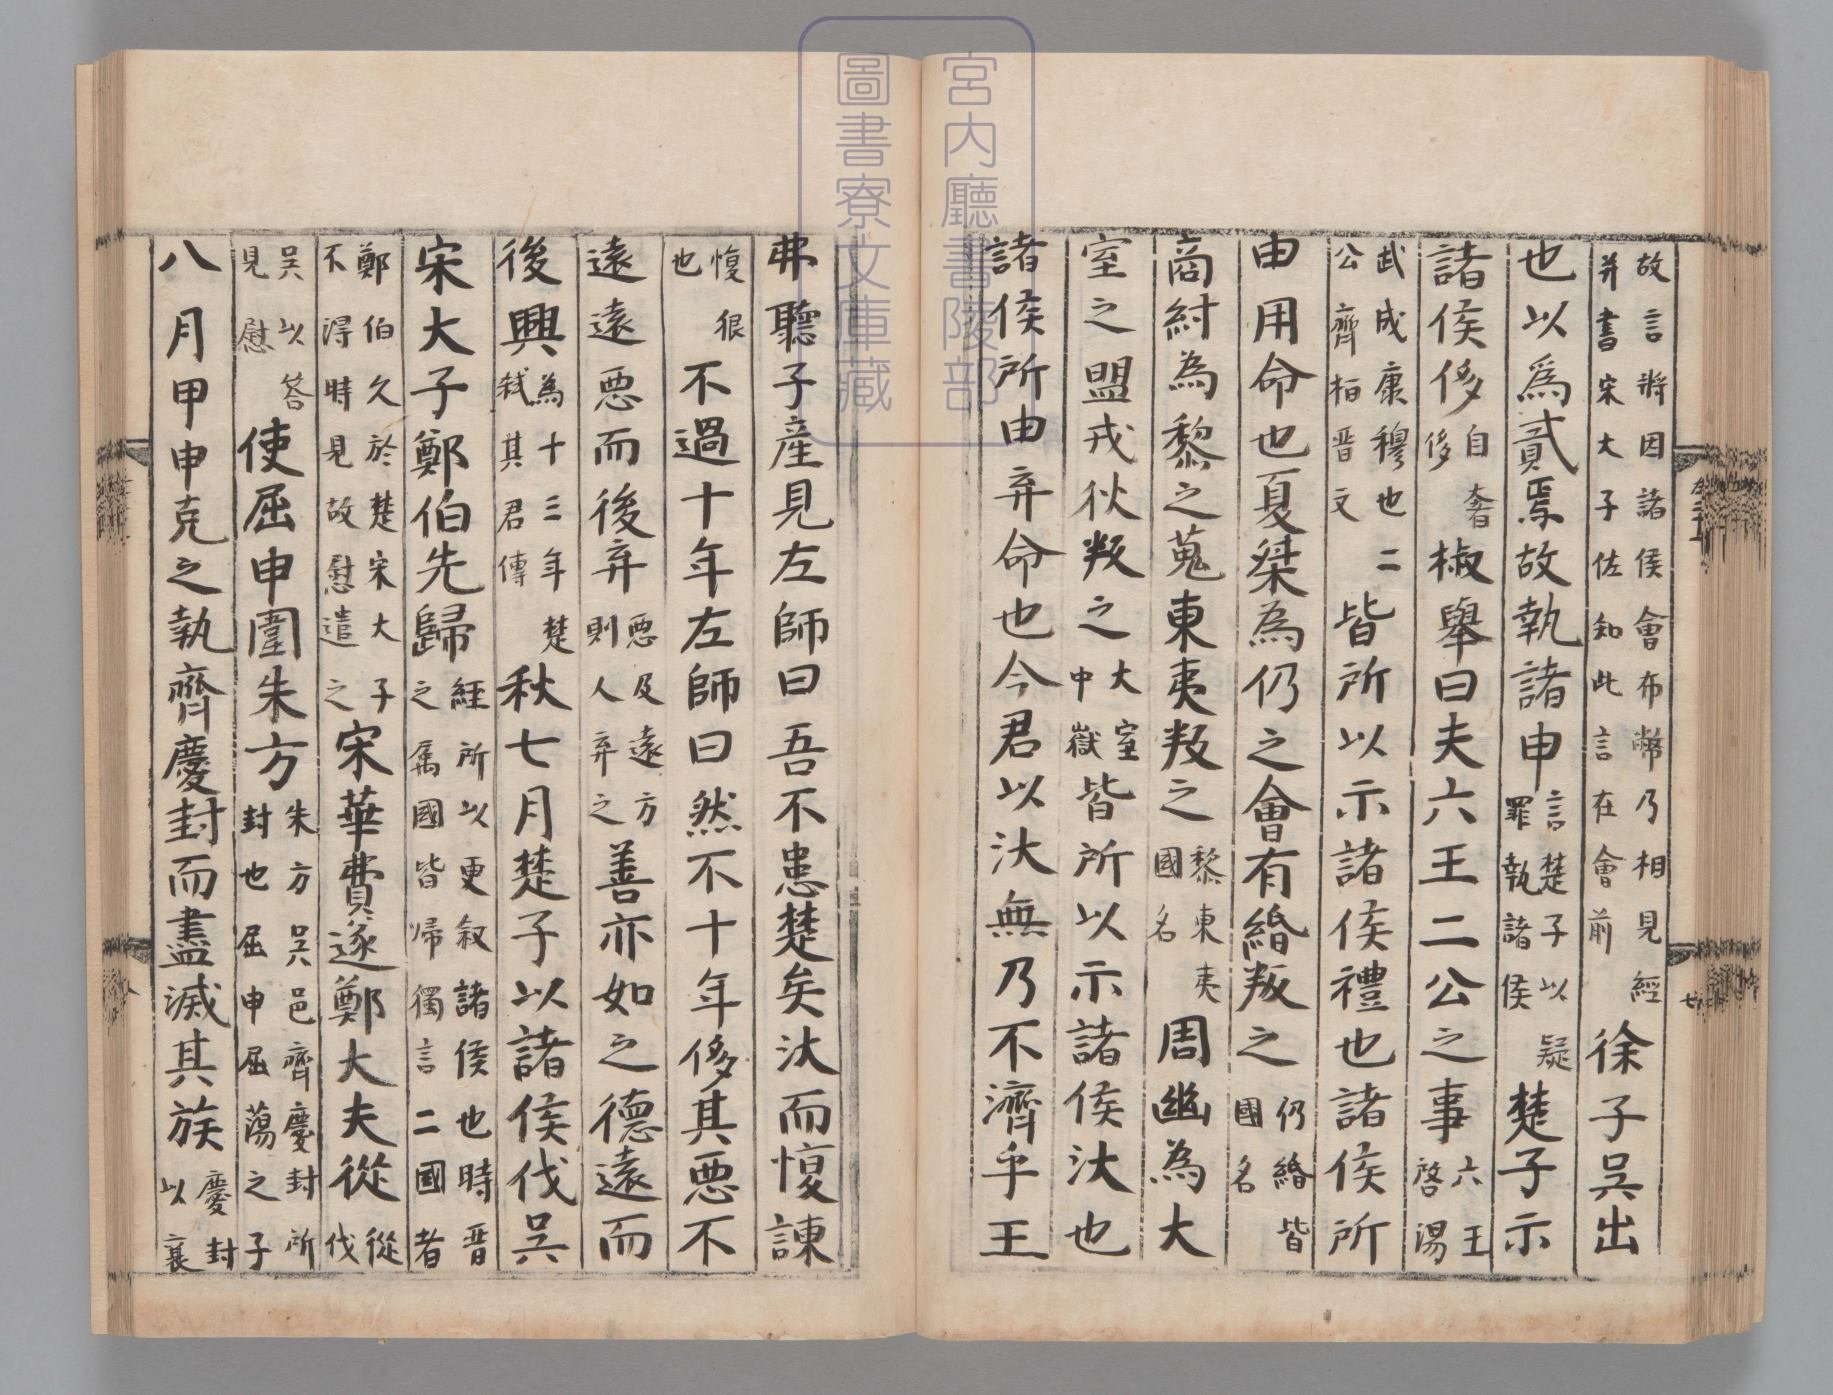 故言將因諸侯會布幣乃相見經并書宋大子佐知此言在會前徐子吳出
也以為貳焉故執諸申言楚子以疑罪執諸侯楚子示
諸侯侈自奢侈椒舉曰夫六王二公之事六王啓湯
武成康穆也二公齊桓晋文皆所以示諸侯禮也諸侯所
由用命也夏桀為仍之會有緡叛之仍緡皆國名
商紂為黎之蒐東夷叛之黎東夷國名周幽為大
室之盟戎狄叛之大室中嶽皆所以示諸侯汏也
諸侯所由弃命也今君以汏無乃不濟乎王
弗聽子產見左師曰吾不患楚矣汏而愎諫
愎很也不過十年左師曰然不十年侈其惡不
遠遠惡而後弃惡及遠方則人弃之善亦如之德遠而
後興為十三年楚弒其君傳秋七月楚子以諸侯伐吳
宋大子鄭伯先歸經所以更叙諸侯也時晋之属國皆帰獨言二國者
鄭伯久於楚宋大子不得時見故慰遣之宋華費遂鄭大夫從從伐
吳以答見慰使屈申圍朱方朱方吳邑齊慶封所封也屈申屈蕩之子
八月甲申克之執齊慶封而盡滅其族慶封以襄
宮內廳書陵部
圖書寮文庫藏